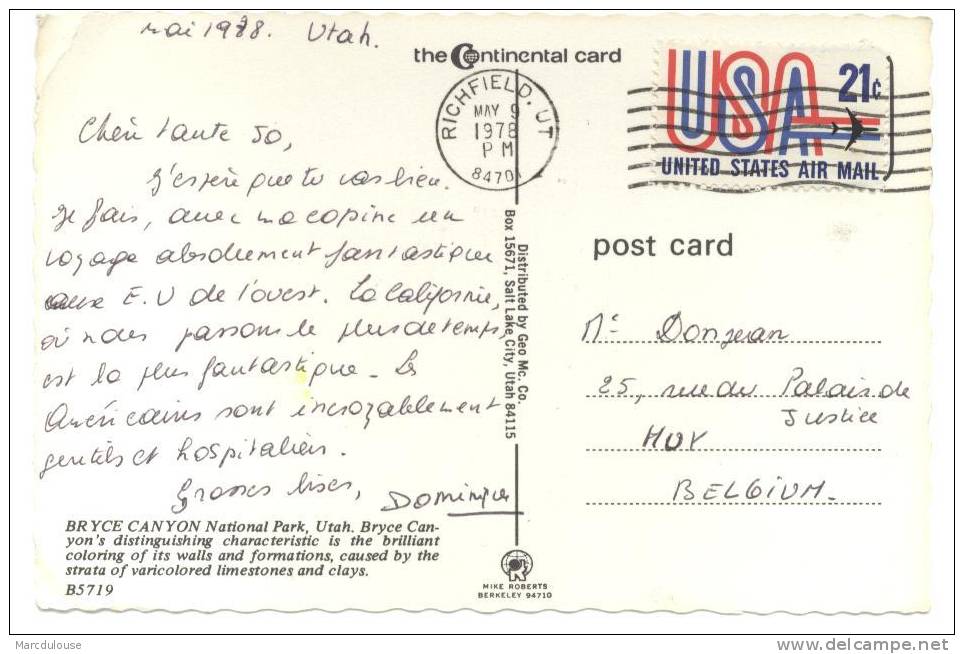 mai 1978. Utah.
the Continental card
RICHFIELD, UT
MAY 9
1978
PM
84701
USA 21c
UNITED STATES AIR MAIL
Chère tante Jo,
J'espère que tu vas bien.
Je fais, avec ma copine un
voyage absolument fantastique
aux E.U de l'ouest. La Californie,
où nous passons le plus de temps,
est la plus fantastique. Les
Américains sont incroyablement
gentils et hospitaliers.
Grosses bises, Dominique
BRYCE CANYON National Park, Utah. Bryce Can-
yon's distinguishing characteristic is the brilliant
coloring of its walls and formations, caused by the
strata of varicolored limestones and clays.
B5719
Distributed by Geo Mc. Co.
Box 15671, Salt Lake City, Utah 84115
MIKE ROBERTS
BERKELEY 94710
post card
Donjean
25, rue du Palais de
Justice
HUY
BELGIUM.
Marcdulouse
delcampe.net